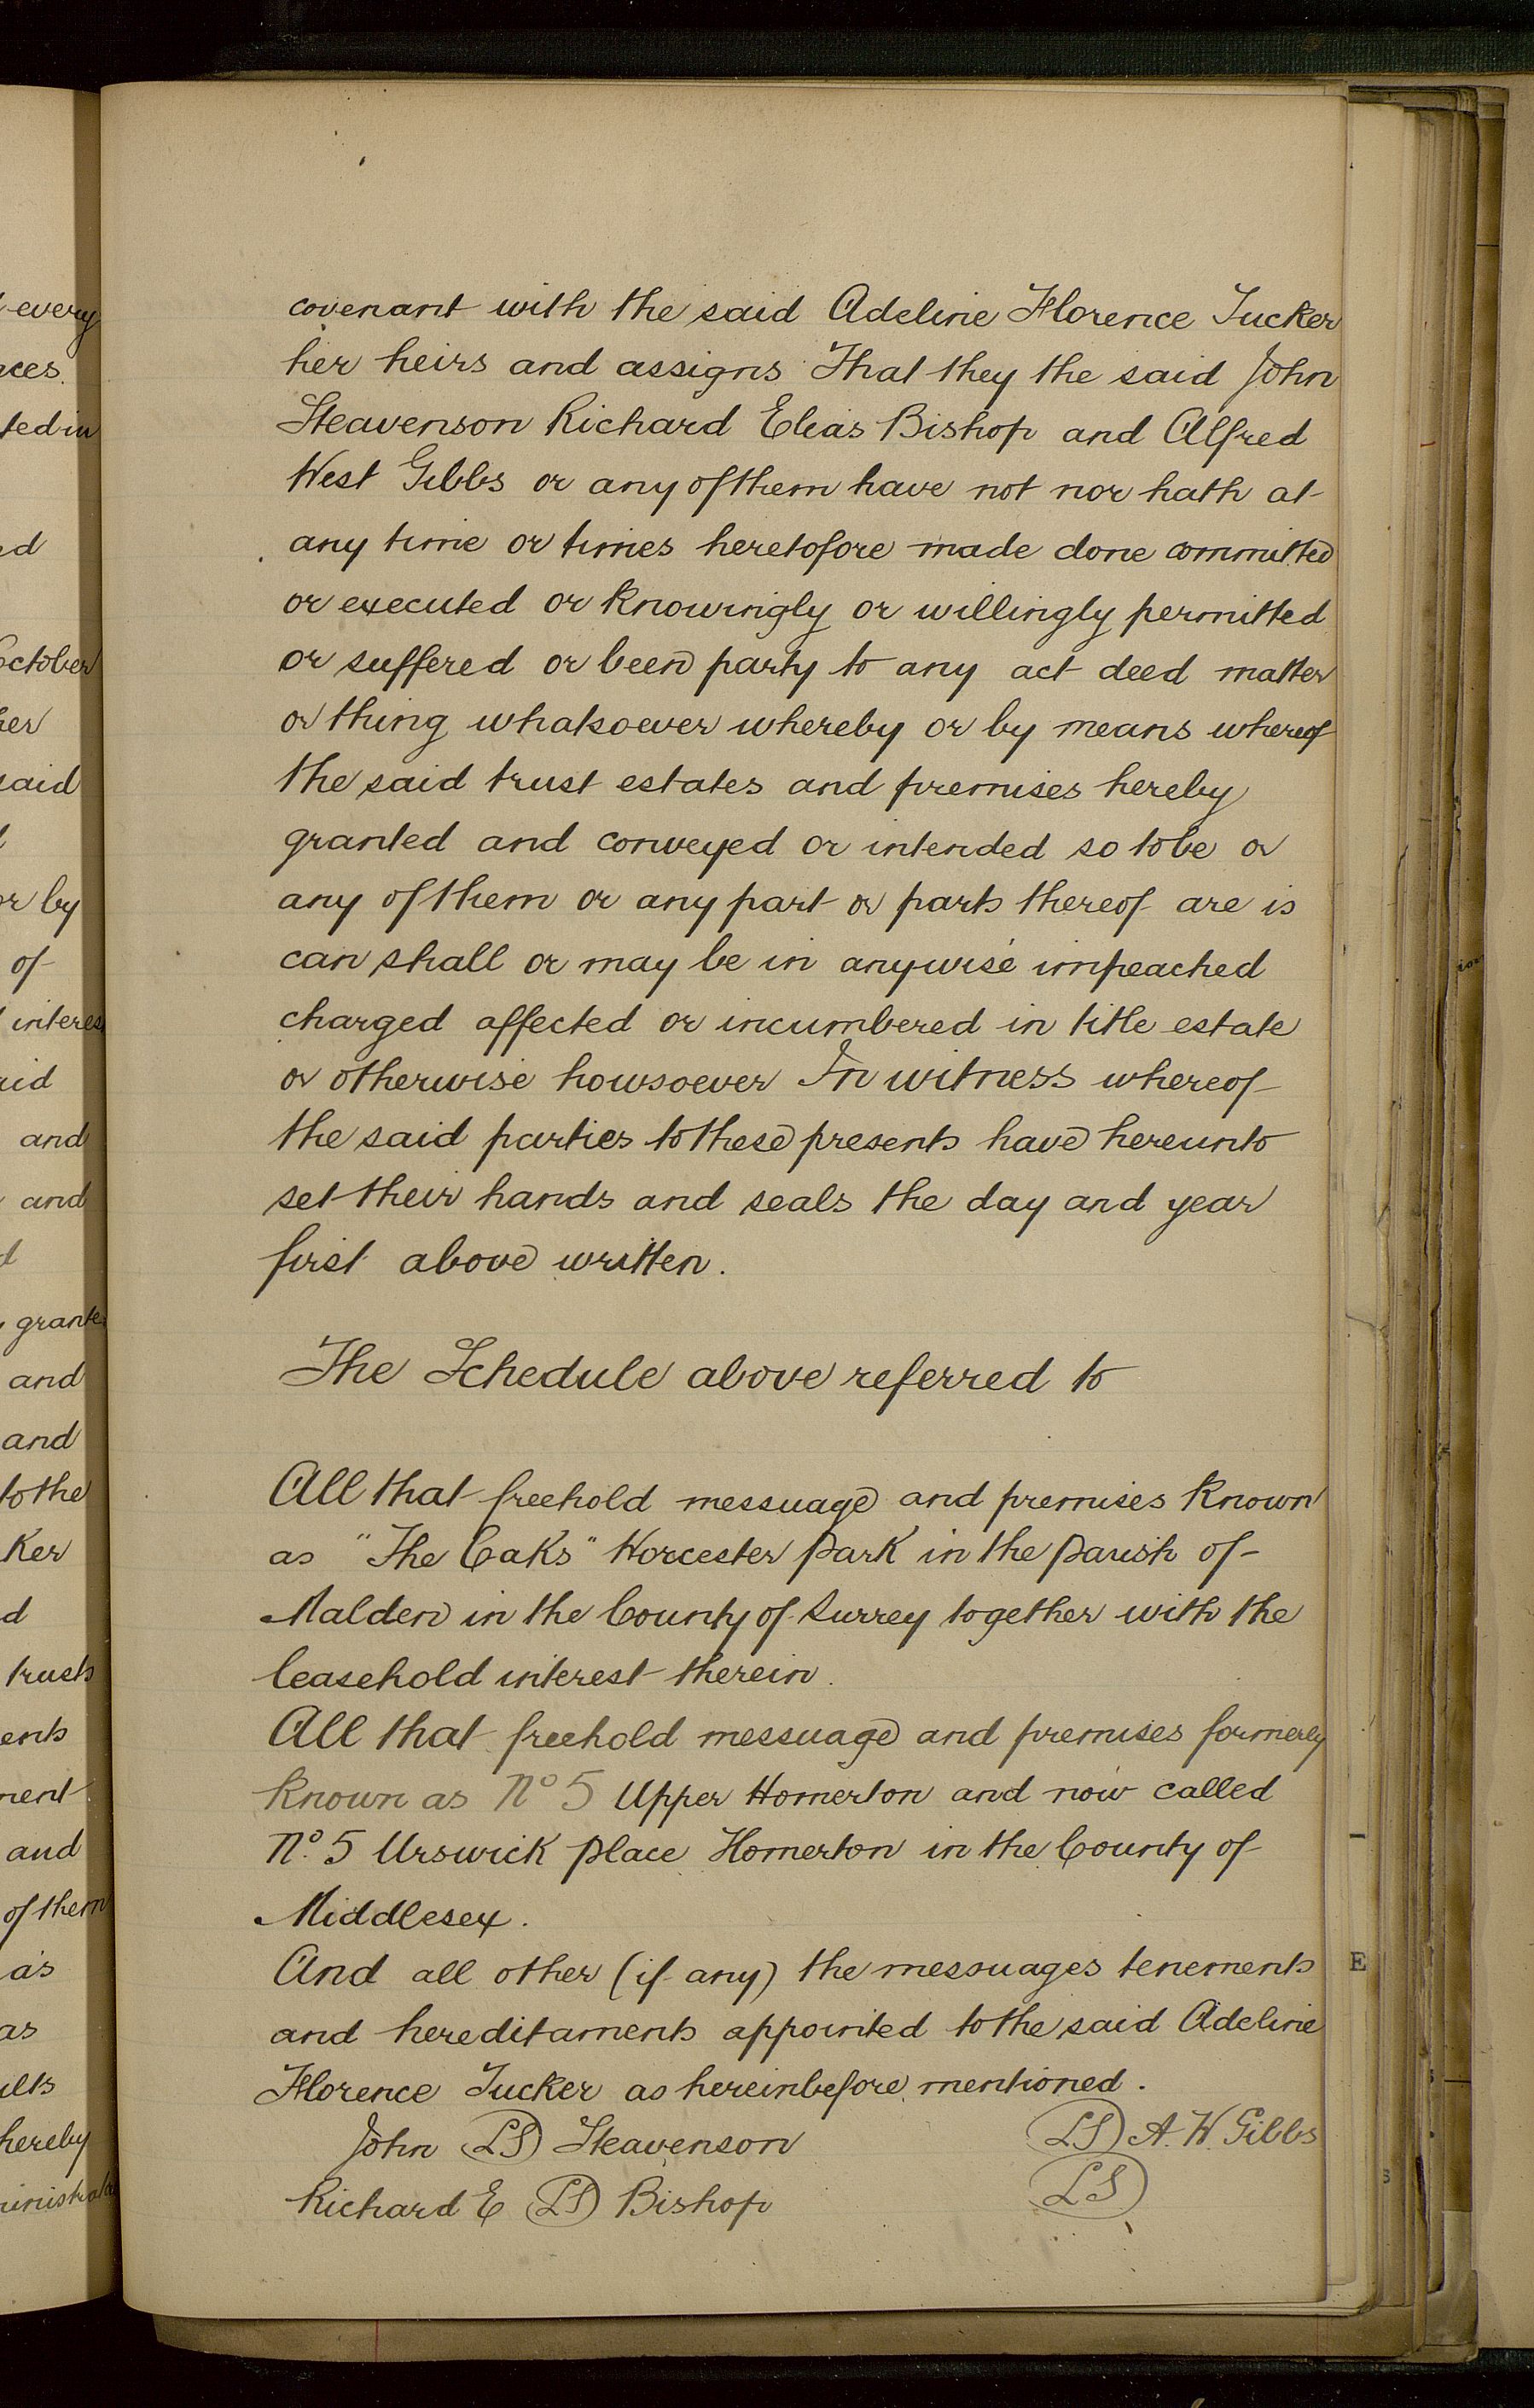 covenant with the said Adeline Florence Tucker
her heirs and assigns That they the said John
Steavenson Richard Elias Bishop and Alfred
West Gibbs or any of them have not nor hath at
any time or times heretofore made done committed
or executed or knowingly or willingly permitted
or suffered or been party to any act deed matter
or thing whatsoever whereby or by means whereof
the said trust estates and premises hereby
granted and conveyed or intended so to be or
any of them or any part or parts thereof are is
can shall or may be in anywise impeached
charged affected or incumbered in title estate
or otherwise howsoever In witness whereof
the said parties to these presents have hereunto
set their hands and seals the day and year
first above written.
The Schedule above referred to
All that freehold messuage and premises known
as "The Oaks" Worcester Park in the parish of
Malden in the County of Surrey together with the
leasehold interest therein.
All that freehold messuage and premises formerly
known as No 5 Upper Homerton and now called
No. 5 Urswick place Homerton in the County of
Middlesex.
And all other (if any) the messuages tenements
and hereditaments appointed to the said Adeline
Florence Tucker as hereinbefore mentioned.
John LS Steavenson LS A. W. Gibbs
Richard E LS Bishop LS
every
ted in
October
said
or by
of
and
and
and
and
to the
trusts
and
of them
as
as
hereby
E